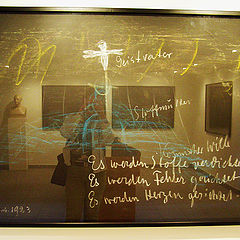 Geistvater
Stoffmutter
Kosmischer Wille
Es werden Stoffe verdichtet
Es werden Fehler gerichtet
Es werden Herzen gerichtet
1923